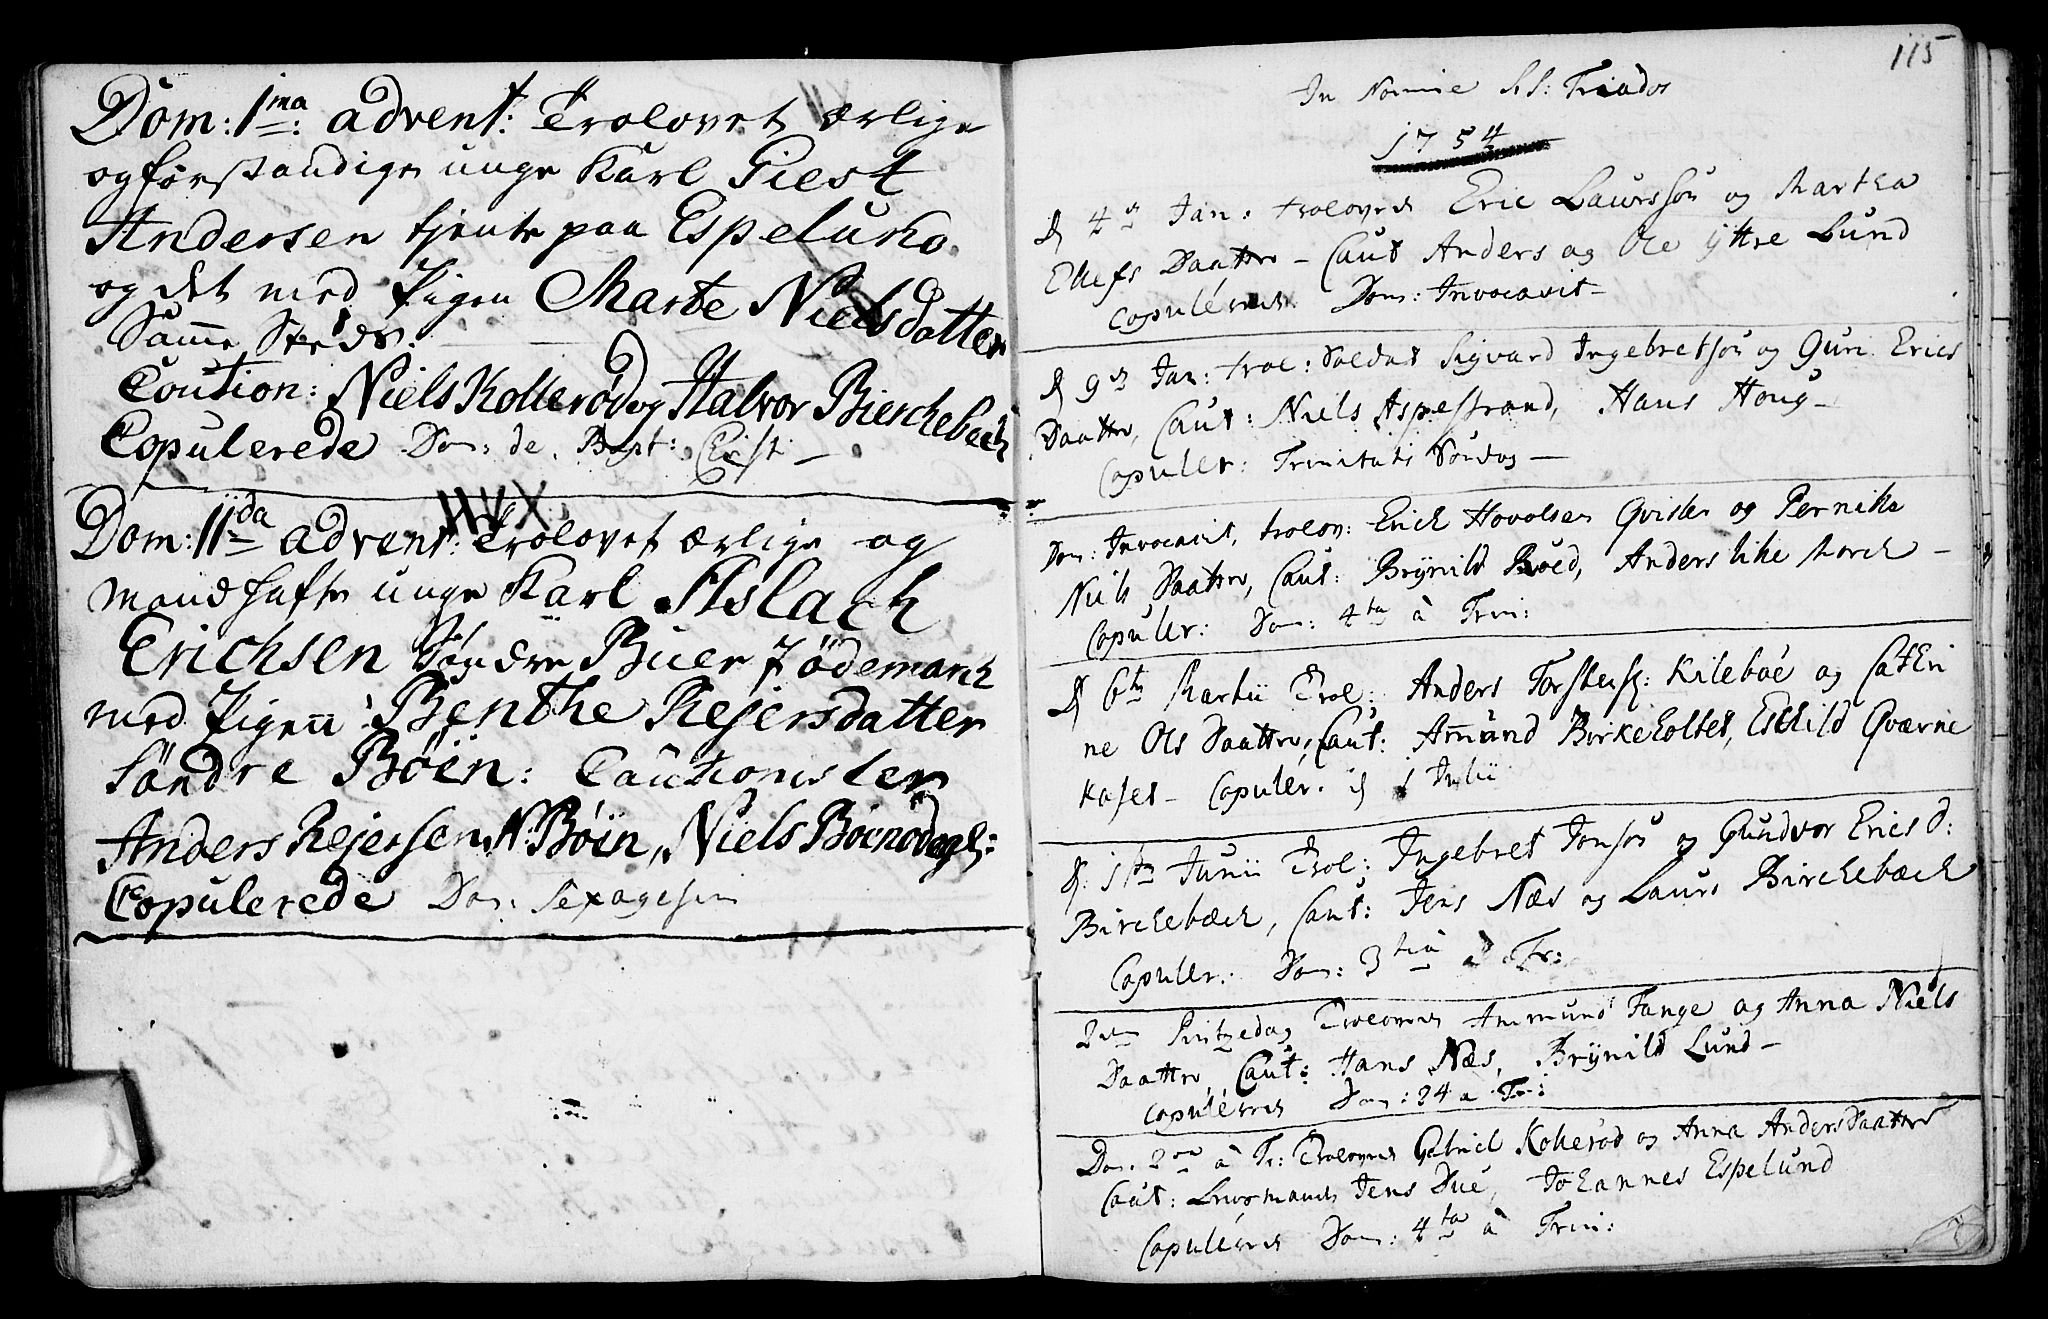 Dom: 1ma: advent: Trolovet ærlige
og forstandige unge Karl Giest
Andersen tjente paa Espelund
og det med Pigen Marte Nielsdatter
Samme Steds.
Coution: Niels Kollerød og Halvor Bierchebech
Copulerede Dom: de Bapt: Christi
Dom: IIda advent: Trolovet ærlige og
mandhafte unge Karl Aslach
Erichsen Søndre Buer i ødemarck
med Pigen: Benthe Rejersdatter
Søndre Bøen: Cautionister
Anders Rejersen N: Bøin, Niels Bøenødegl:
Copulerede Dom: Sexagesim
115
In Nomine S S: Triados
1754
d 4de Jan: trolovede Eric Laursson og Martha
Ellefs Daatter - Caut Anders og Ole ÿttre Lund
copulérede Dom: Invocavit -
d 9de Jan: trol: Soldat Sigvard Ingebretsøn og Guri Erics
Daatter, Caut: Niels Aspestrand, Hans Houg -
Copuler: Trinitatis Søndag -
Dom: Invocavit, trolov: Erich Hovolsen Qvisler og Pernike
Niels Daatter, Caut: Brÿnild Røed, Anders like March -
Copuler: Dom: 4ta à Trin:
d 6te Martii Trol: Anders Torstens: Kileboe og Cathri
ne Ols Daatter, Caut: Amund Birkeholtet, Eschild Qværne
kaset - Copulér. d 1 Julii
d: 1ste Junii Trol: Ingebret Jonsøn og Gundvor Erics d:
Birchebæch, Caut: Jens Næs og Laurs Birchebæch
Copuler: Dom: 3tia à Tr:
2den Pintzedag Trolovede Ammund Tange og Anna Niels
Daatter, Caut: Hans Næs, Brÿnild Lund -
copulérede Dom: 24 a Tr:
Dom. 2da à Tr: Trolovede Gabriel Kollerød og Anna Anders Daatter
Caut: Lensmand Jens Due, Johannes Espelund
Copulérede Dom: 4ta à Trin: